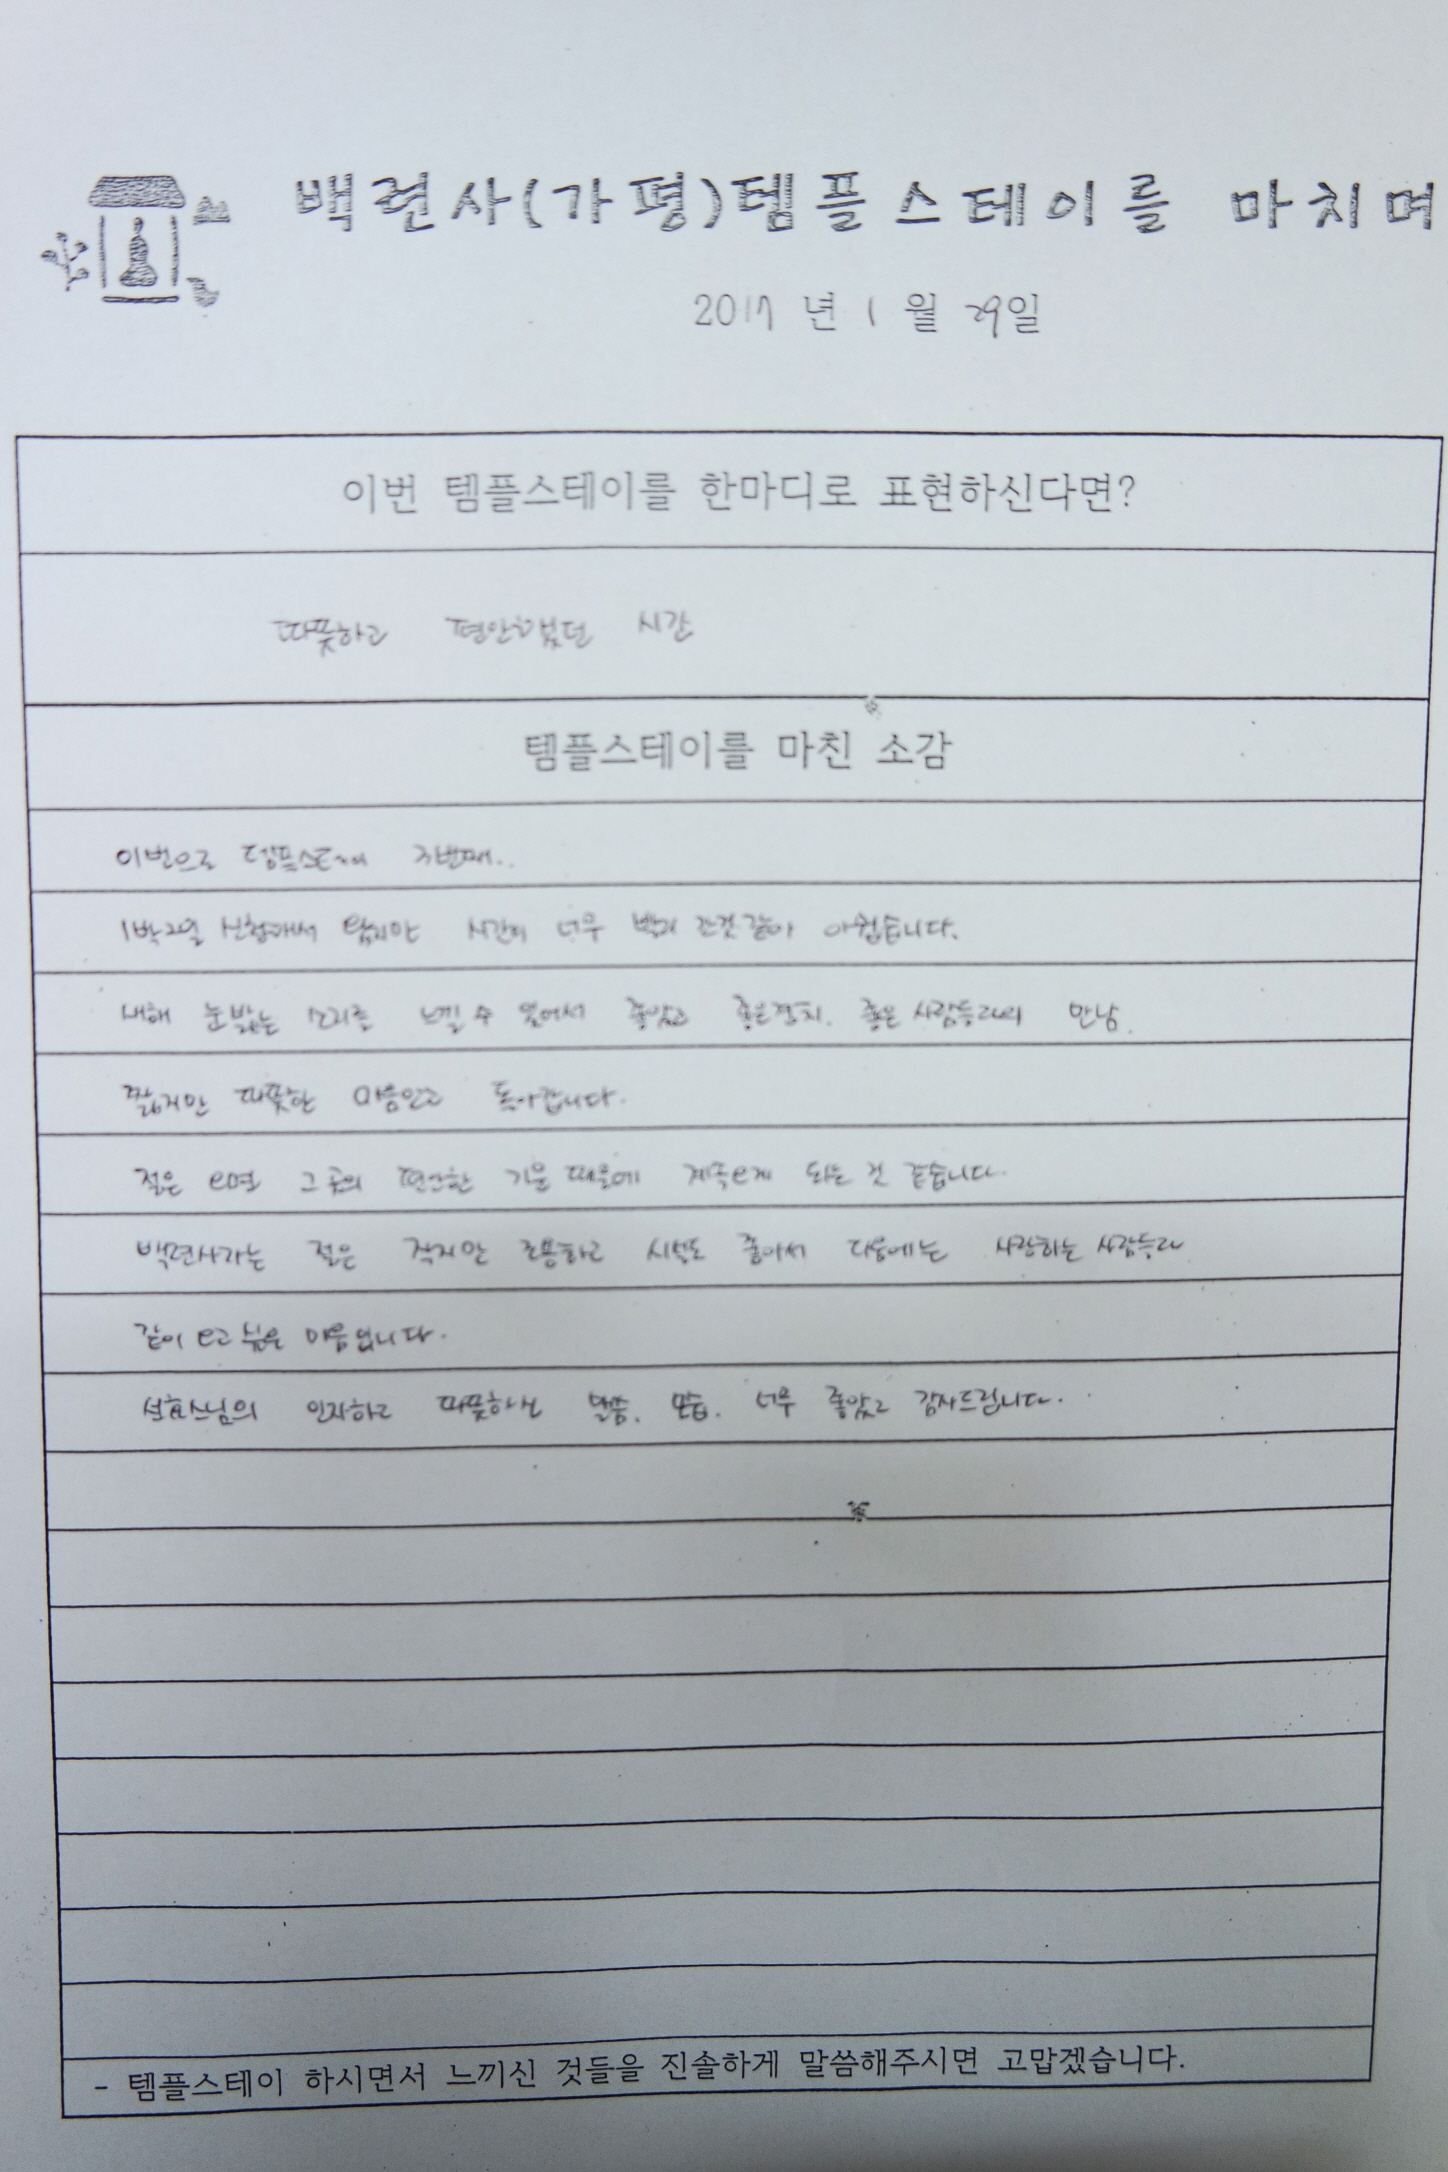 백련사(가평)템플스테이를 마치며
2017 년 1 월 29일
이번 템플스테이를 한마디로 표현하신다면?
따뜻하고 편안했던 시간
템플스테이를 마친 소감
이번으로 템플스테이 3번째..
1박2일 신청해서 왔지만 시간이 너무 빨리 간것같아 아쉽습니다.
새해 눈밟는 소리를 느낄 수 있어서 좋았고 좋은경치, 좋은 사람들과의 만남.
짧지만 따뜻한 마음안고 돌아갑니다.
절은 오면 그 곳의 편안한 기운 때문에 계속오게 되는 것 같습니다.
백련사라는 절은 작지만 조용하고 시설도 좋아서 다음에는 사랑하는 사람들과
같이 오고 싶은 마음입니다.
석효스님의 인자하고 따뜻하신 말씀, 모습. 너무 좋았고 감사드립니다.
- 템플스테이 하시면서 느끼신 것들을 진솔하게 말씀해주시면 고맙겠습니다.